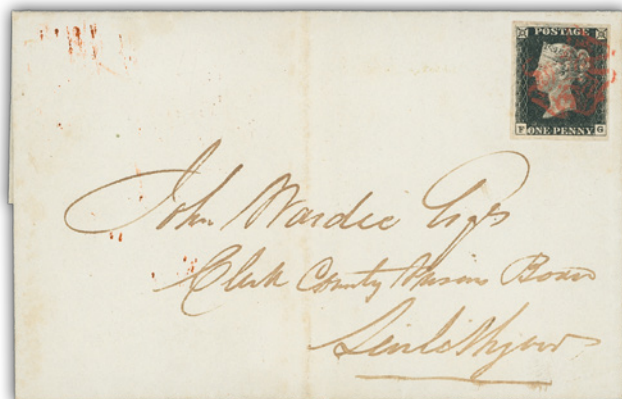 POSTAGE
F ONE PENNY G
John Wardie Esqr
Clerk County Prisons Board
Linlithgow